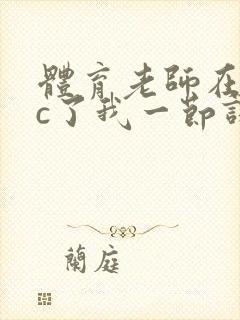 體育老師在
c了我一節
蘭庭